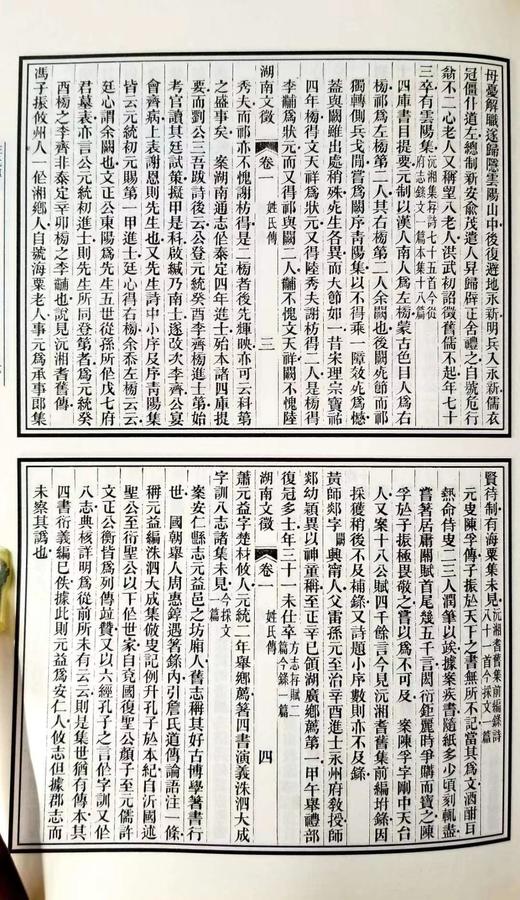 母憂解職遂歸隱雲陽山中後復避地永新明兵入永新儒衣
冠僵仆道左總制新安俞茂遣人舁歸辟正舍禮之自號危行
翁不二心老人又稱望八老人洪武初詔徵舊儒不起年七十
三卒有雲陽集沅湘集存詩七十五首今從府志錄文一篇本集十八篇
四庫書目提要元制以漢人南人爲左榜蒙古色目人爲右
榜祁爲左榜第二人其右榜第二人余闕也後闕死節而祁
獨轉側兵戈閒嘗爲闕序靑陽集以不得乘一障效死爲憾
蓋與闕雖出處稍殊死生各異而大節如一昔宋理宗寶祐
四年榜得文天祥爲狀元又得陸秀夫謝枋得二人是榜得
李黼爲狀元而又得祁與闕二人黼不愧文天祥闕不愧陸
湖南文徵 卷一 姓氏傳 三
秀夫而祁亦不愧謝枋得是二榜者後先輝映亦可云科第
之盛事矣 案湖南通志作泰定四年進士殆本諸四庫提
要而劉公三吾跋詩後云公登元統癸酉李齊榜進士第始
考官讀其廷試策擬甲是科啟緘乃南士遂改次李齊公宴
會齊病上表謝恩則先生也又先生詩中小序及序靑陽集
皆云元統初元賜第一甲進士廷心得右榜余忝左榜云云
廷心謂余闕也文正公東陽爲先生五世從孫所作戊七府
君墓表亦言公元統初進士則先生所同登第者爲元統癸
酉榜之李齊非泰定辛卯榜之李黼也說見沅湘耆舊傳
馮子振攸州人一作湘鄉人自號海粟老人事元爲承事郎集
賢待制有海粟集未見沅湘耆舊集前編錄詩八十一首今採文一篇
元史陳孚傳子振於天下之書無所不記當其爲文酒酣耳
熱命侍史二三人潤筆以竢據案疾書隨紙多少頃刻輒盡
嘗著居庸關賦首尾幾五千言閎衍鉅麗時爭購而寶之陳
孚於子振極畏敬之嘗以爲不可及 案陳孚字剛中天台
人又案十八公賦四千餘言今見沅湘耆舊集前編坿錄因
採獲稍後不及補錄又詩題小序數則亦不及錄
黃師郯字闕興甯人父雷孫元至治辛酉進士永州府敎授師
郯幼穎異以神童稱至正辛巳領湖廣鄉薦第一甲午舉禮部
復冠多士年三十一未仕卒方志存賦二篇今錄一篇
湖南文徵 卷一 姓氏傳 四
蕭元益字楚材攸人元統二年舉鄉薦著四書演義洙泗大成
字訓八志諸集未見今採文一篇
案安仁縣志元益邑之坊廂人舊志稱其好古博學著書行
世 國朝舉人周惠錞遇著錄內引詹氏道傳論語注一條
稱元益編洙泗大成集倣史記例升孔子於本紀自沂國述
聖公至衍聖公以下作世家自兗國復聖公顏子至元儒許
文正公衡皆爲列傳竝贊又以六經孔子之言作字訓又作
八志典核詳明爲從前所未有云云則是集世猶有傳本其
四書衍義編巳佚據此則元益爲安仁人攸志但據郡志而
未察其譌也